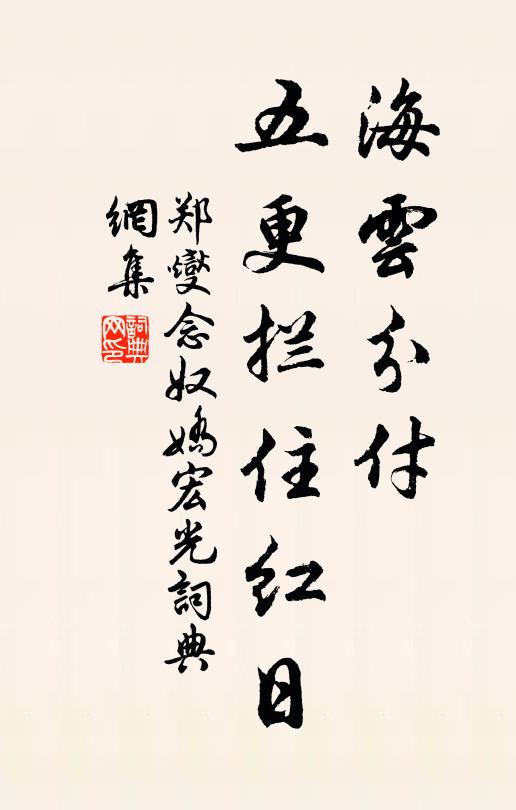 海雲分付
五更拦住红日
郑燮念奴嬌宏光詞典
網集
詞典
网印